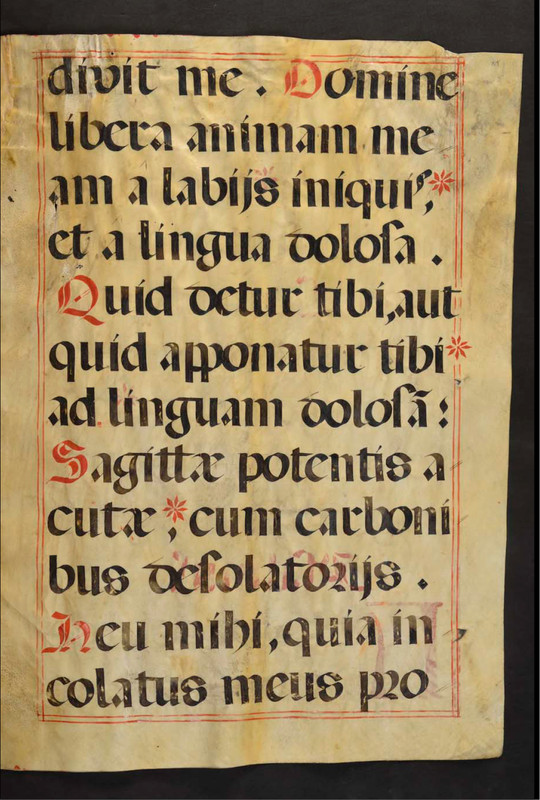 divit me. Domine
libera animam me
am a labijs iniquis,*
et a lingua dolosa.
Quid detur tibi, aut
quid apponatur tibi*
ad linguam dolosā:
Sagittæ potentis a
cutæ,* cum carboni
bus desolatorijs.
Heu mihi, quia in
colatus meus pro